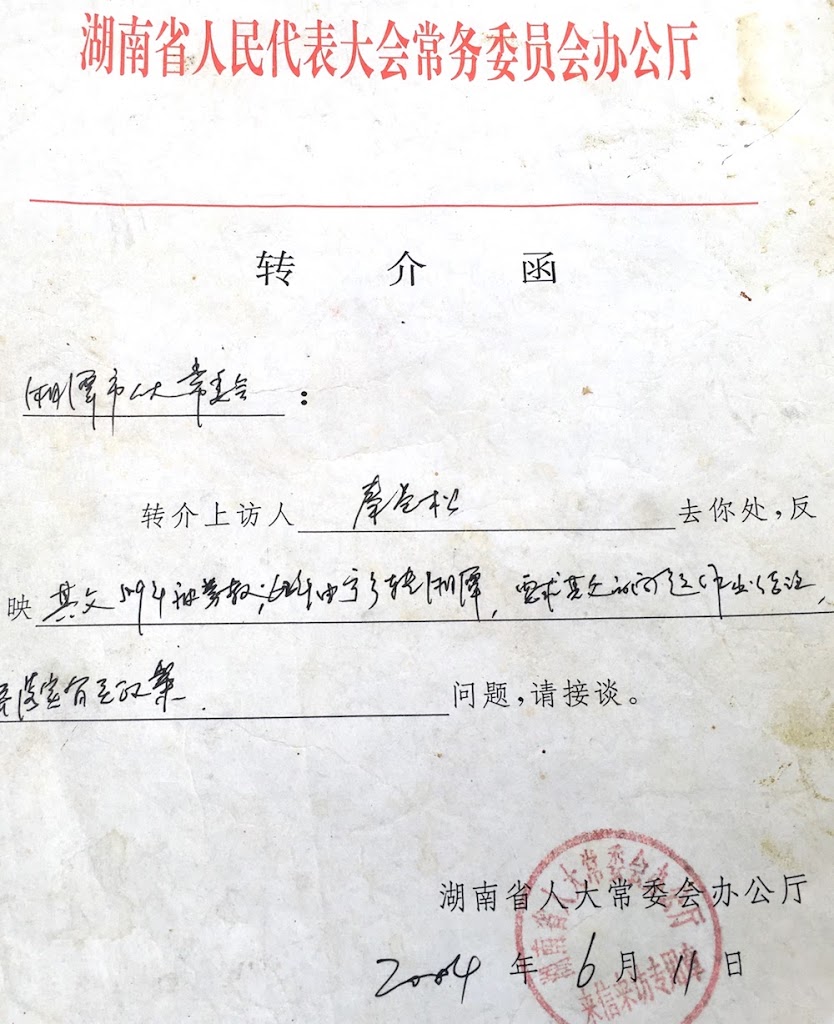 湖南省人民代表大会常务委员会办公厅
转介函
湘潭市人大常委会：
转介上访人 松 去你处，反
映 其父59年被劳教，年由宁乡转湘潭，要求其父的问题作出结论，
落实有关政策. 问题，请接谈。
湖南省人大常委会办公厅
2004年6月11日
湖南省人大常委会办公厅
来信来访专用章